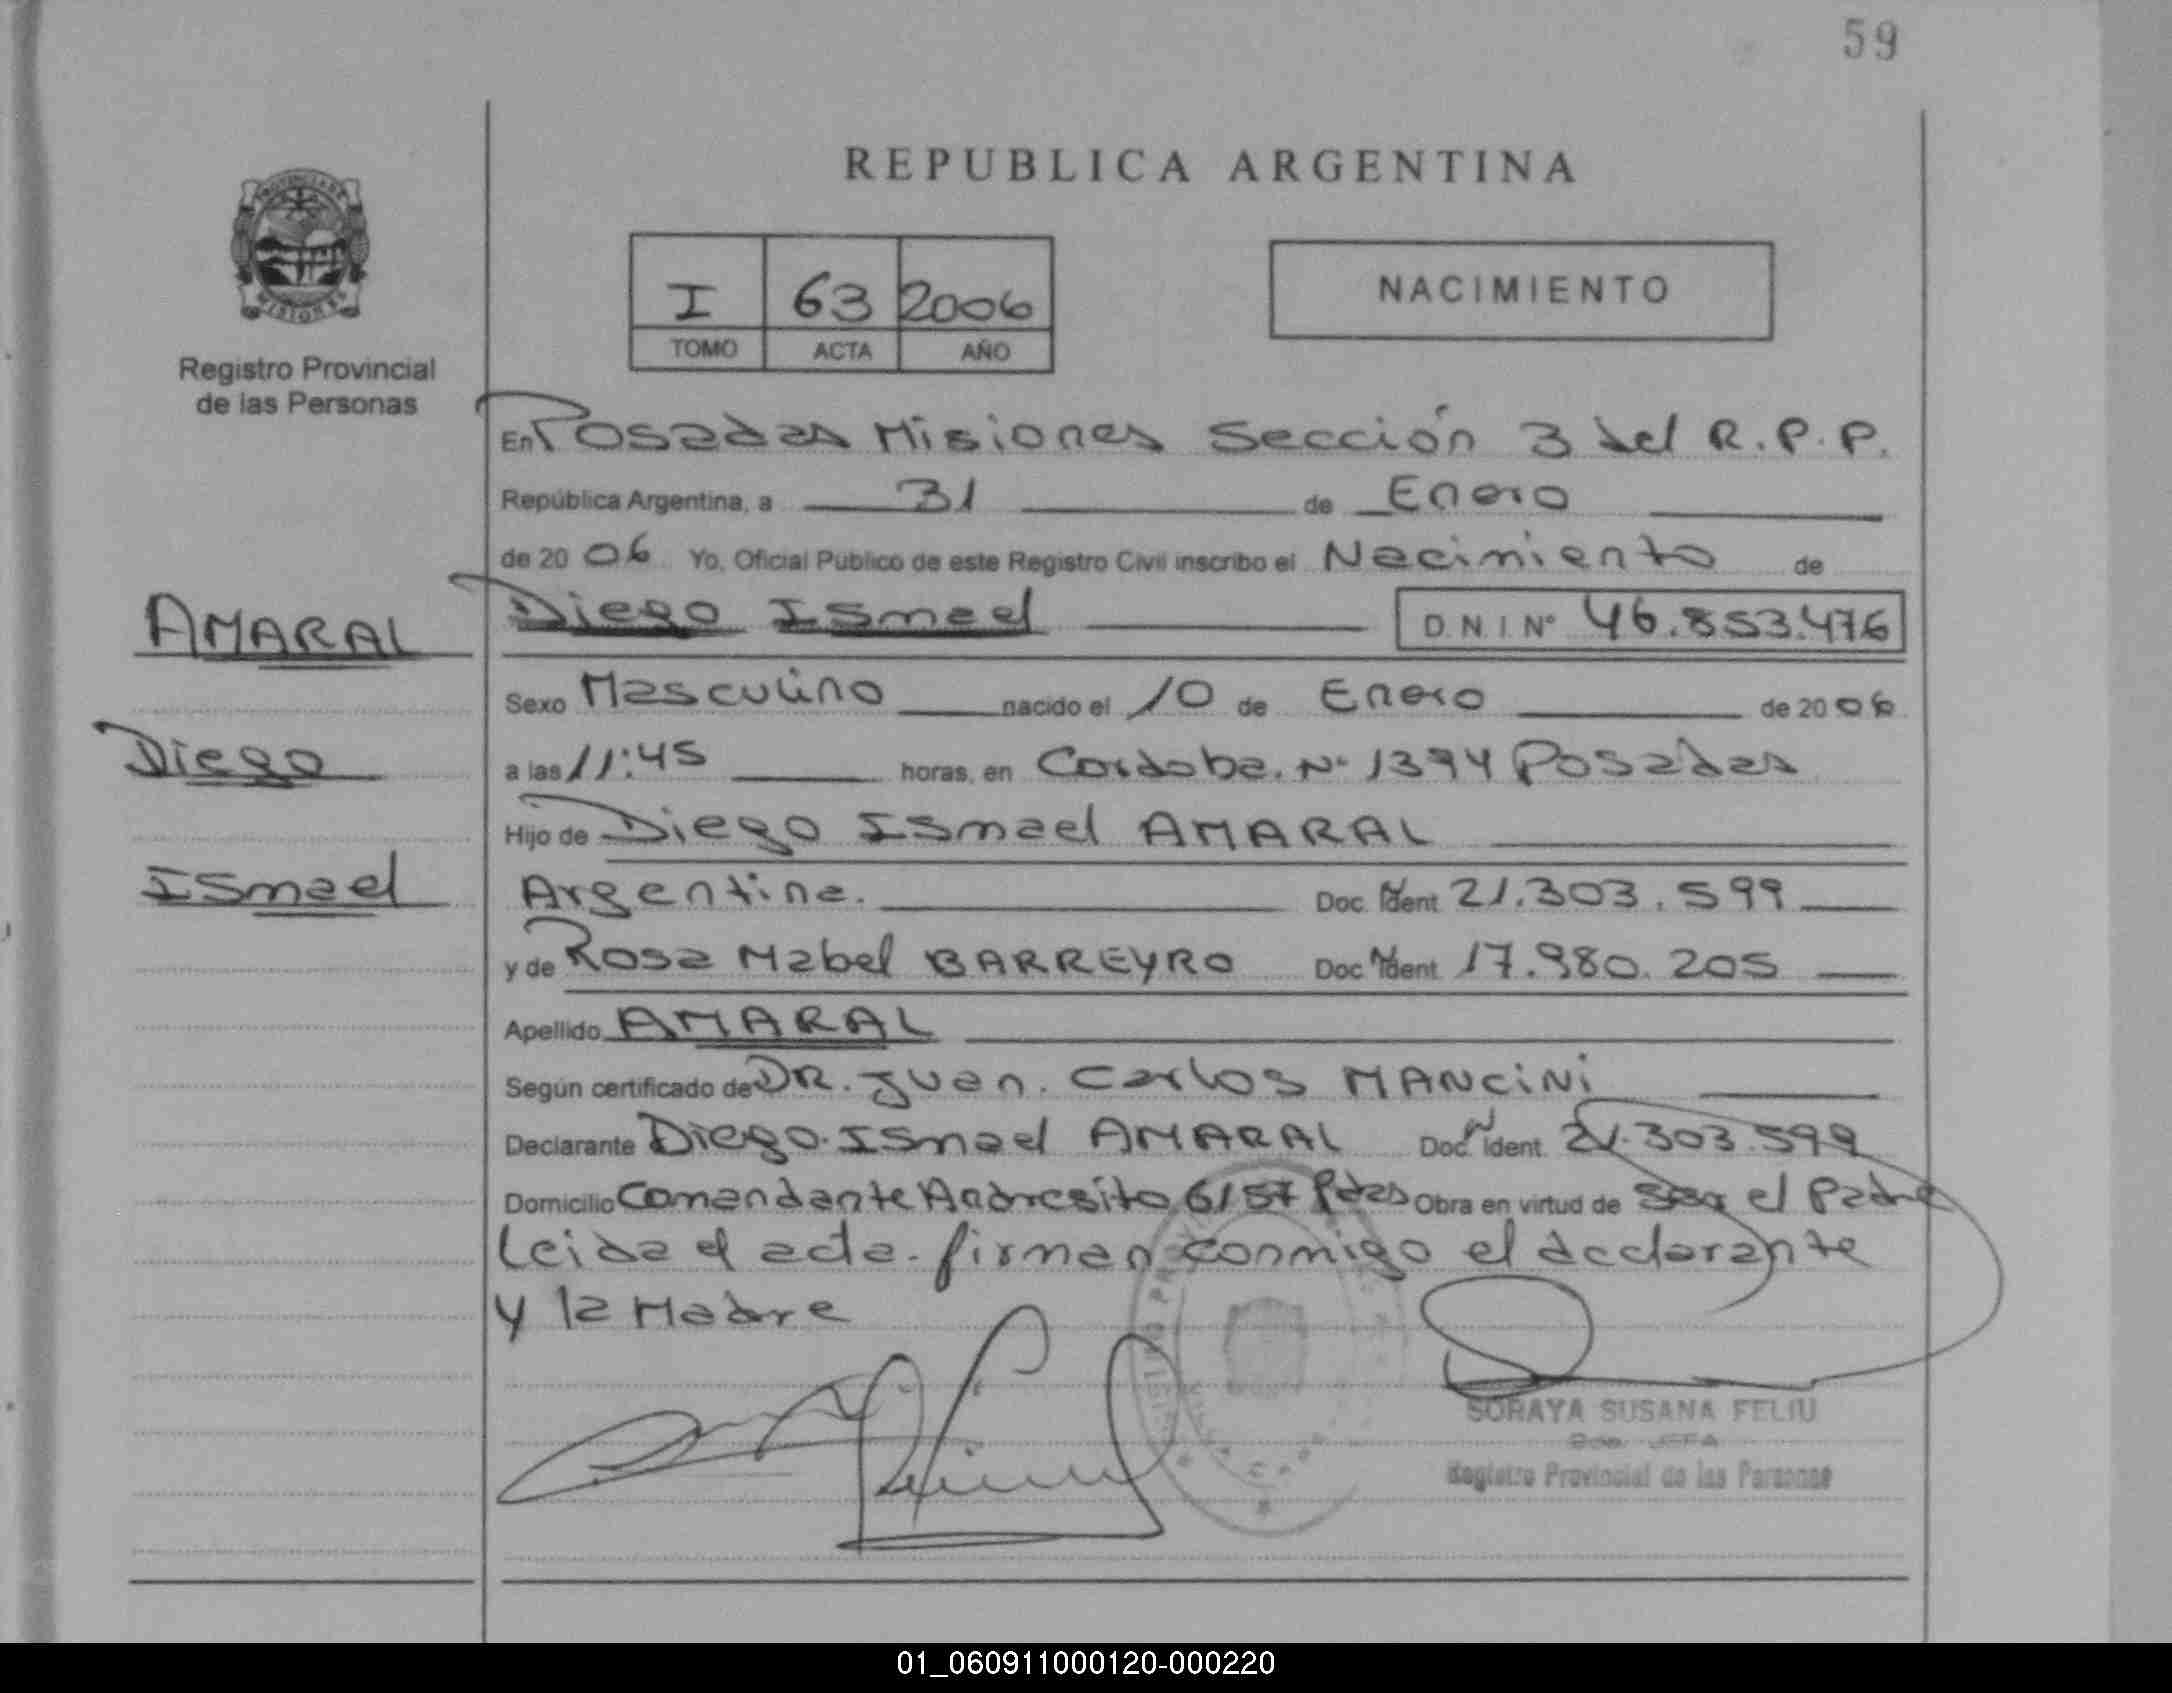 59
REPUBLICA ARGENTINA
I 63 2006
TOMO ACTA AÑO
NACIMIENTO
Registro Provincial
de las Personas
En Posadas Misiones Sección 3 del R.P.P.
República Argentina, a 31 de Enero
de 20 06 Yo, Oficial Público de este Registro Civil inscribo el Nacimiento de
AMARAL
Diego
Ismael
Diego Ismael D.N.I Nº 46.853.476
Sexo Masculino nacido el 10 de Enero de 20 06
a las 11:45 horas, en Cordoba. Nº 1394 Posadas
Hijo de Diego Ismael AMARAL
Argentina. Doc. Ident. 21.303.599
y de Rosa Mabel BARREYRO Doc Ident 17.980.205
Apellido AMARAL
Según certificado de DR. Juan. Carlos MANCINI
Declarante Diego. Ismael AMARAL Doc. Ident. 21.303.599
Domicilio Comandante Andresito 6157 Pdas Obra en virtud de ser el Padre
Leida el acta. firman conmigo el declarante
y la Madre
SORAYA SUSANA FELIU
JEFA
Registro Provincial de las Personas
01_060911000120-000220